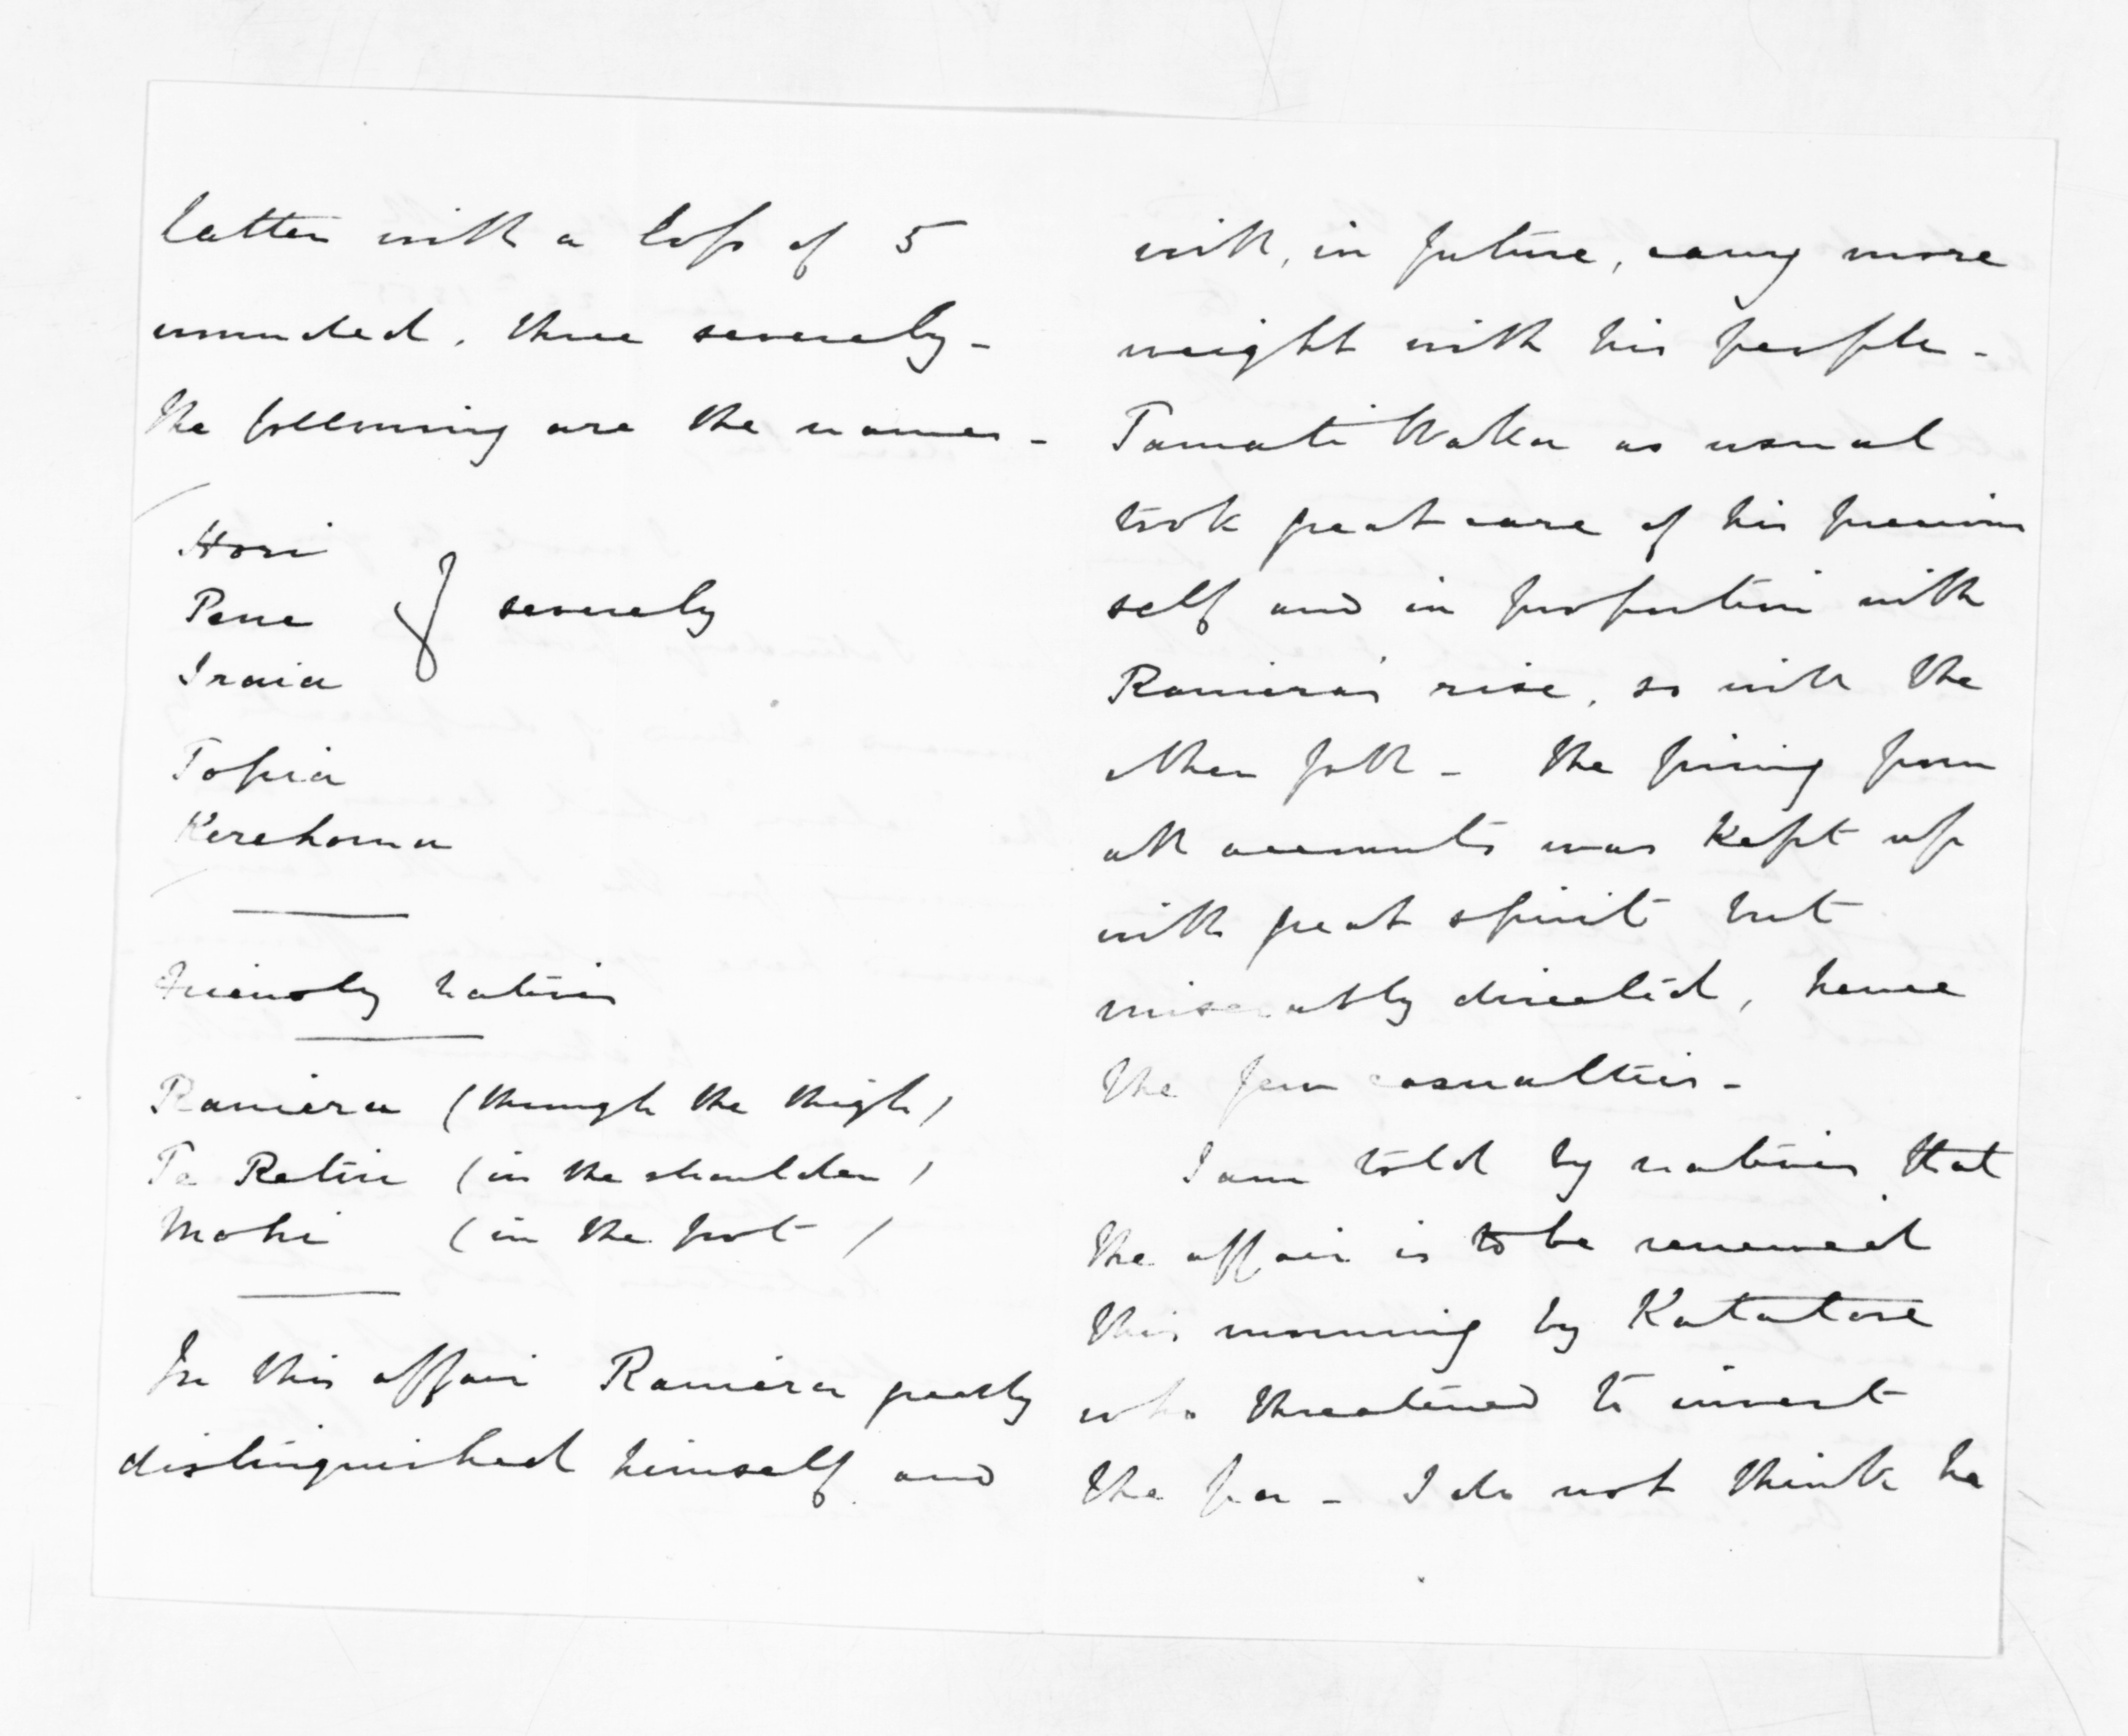 latter with a loss of 5
wounded, three severely -
The following are the names -
Hori
Pene } severely
Iraia
Topia
Kerehoma
Friendly natives
Raniera (through the thigh)
Te Retiu (in the shoulder)
Mohi (in the foot)
In this affair Raniera greatly
distinguished himself and
will, in future, carry more
weight with his people -
Tamati Waka as usual
took great care of his precious
self and in proportion with
Raniera's rise, so will the
other fall - The firing from
all accounts was kept up
with great spirit but
miserably directed, hence
the few casualties -
I am told by natives that
the affair is to be renewed
this morning by Katatore
who threatened to invest
the pa - I do not think he